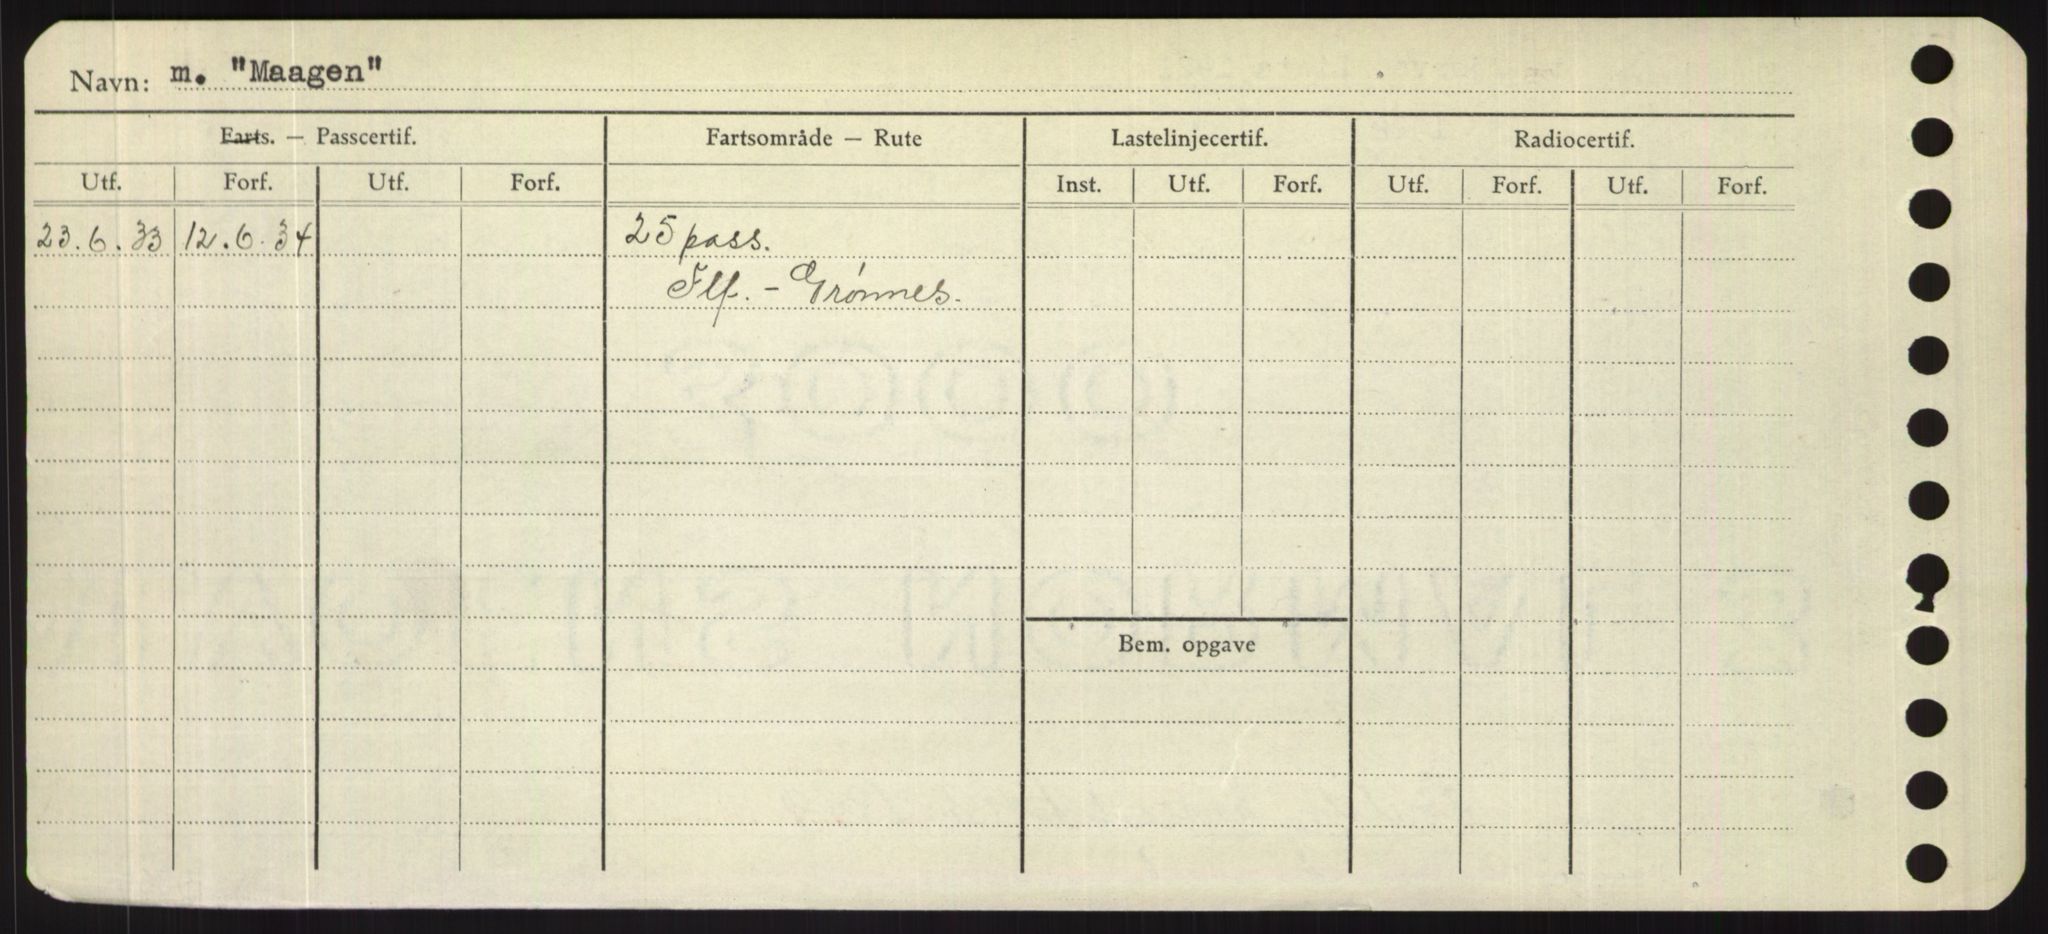 Navn: m. "Maagen"
Farts. — Passcertif. Fartsområde — Rute Lastelinjecertif. Radiocertif.
Utf. Forf. Utf. Forf. Inst. Utf. Forf. Utf. Forf. Utf. Forf.
23.6.33 12.6.34 25 pass.
Flf. - Grønnes.
Bem. opgave